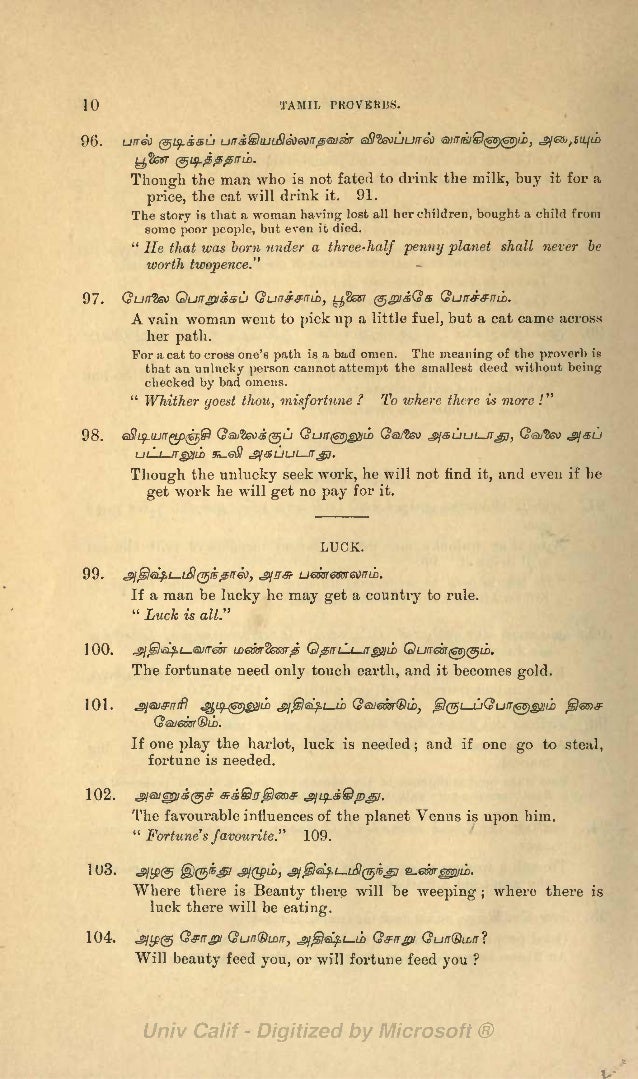 10 TAMIL PROVERBS.
96. பால் குடிக்கப் பாக்கியமில்லாதவன் விலைப்பால் வாங்கினானாம், அதையும்
பூனை குடித்ததாம்.
Though the man who is not fated to drink the milk, buy it for a
price, the cat will drink it. 91.
The story is that a woman having lost all her children, bought a child from
some poor people, but even it died.
" He that was born under a three-half penny planet shall never be
worth twopence."
97. போலை பொறுக்கப் போச்சாம், பூனை குறுக்கே போச்சாம்.
A vain woman went to pick up a little fuel, but a cat came across
her path.
For a cat to cross one's path is a bad omen. The meaning of the proverb is
that an unlucky person cannot attempt the smallest deed without being
checked by bad omens.
" Whither goest thou, misfortune ? To where there is more !"
98. விடியாமூஞ்சி வேலைக்குப் போனாலும் வேலை அகப்படாது, வேலை அகப்
பட்டாலும் கூலி அகப்படாது.
Though the unlucky seek work, he will not find it, and even if he
get work he will get no pay for it.
LUCK.
99. அதிஷ்டமிருந்தால், அரசு பண்ணலாம்.
If a man be lucky he may get a country to rule.
" Luck is all."
100. அதிஷ்டவான் மண்ணைத் தொட்டாலும் பொன்னாகும்.
The fortunate need only touch earth, and it becomes gold.
101. அவசாரி ஆடினாலும் அதிஷ்டம் வேண்டும், திருடப்போனாலும் திசை
வேண்டும்.
If one play the harlot, luck is needed ; and if one go to steal,
fortune is needed.
102. அவனுக்குச் சுக்கிரதிசை அடிக்கிறது.
The favourable influences of the planet Venus is upon him.
" Fortune's favourite." 109.
103. அழகு இருந்து அழும், அதிஷ்டமிருந்து உண்ணும்.
Where there is Beauty there will be weeping ; where there is
luck there will be eating.
104. அழகு சோறு போடுமா, அதிஷ்டம் சோறு போடுமா ?
Will beauty feed you, or will fortune feed you ?
Univ Calif - Digitized by Microsoft ®